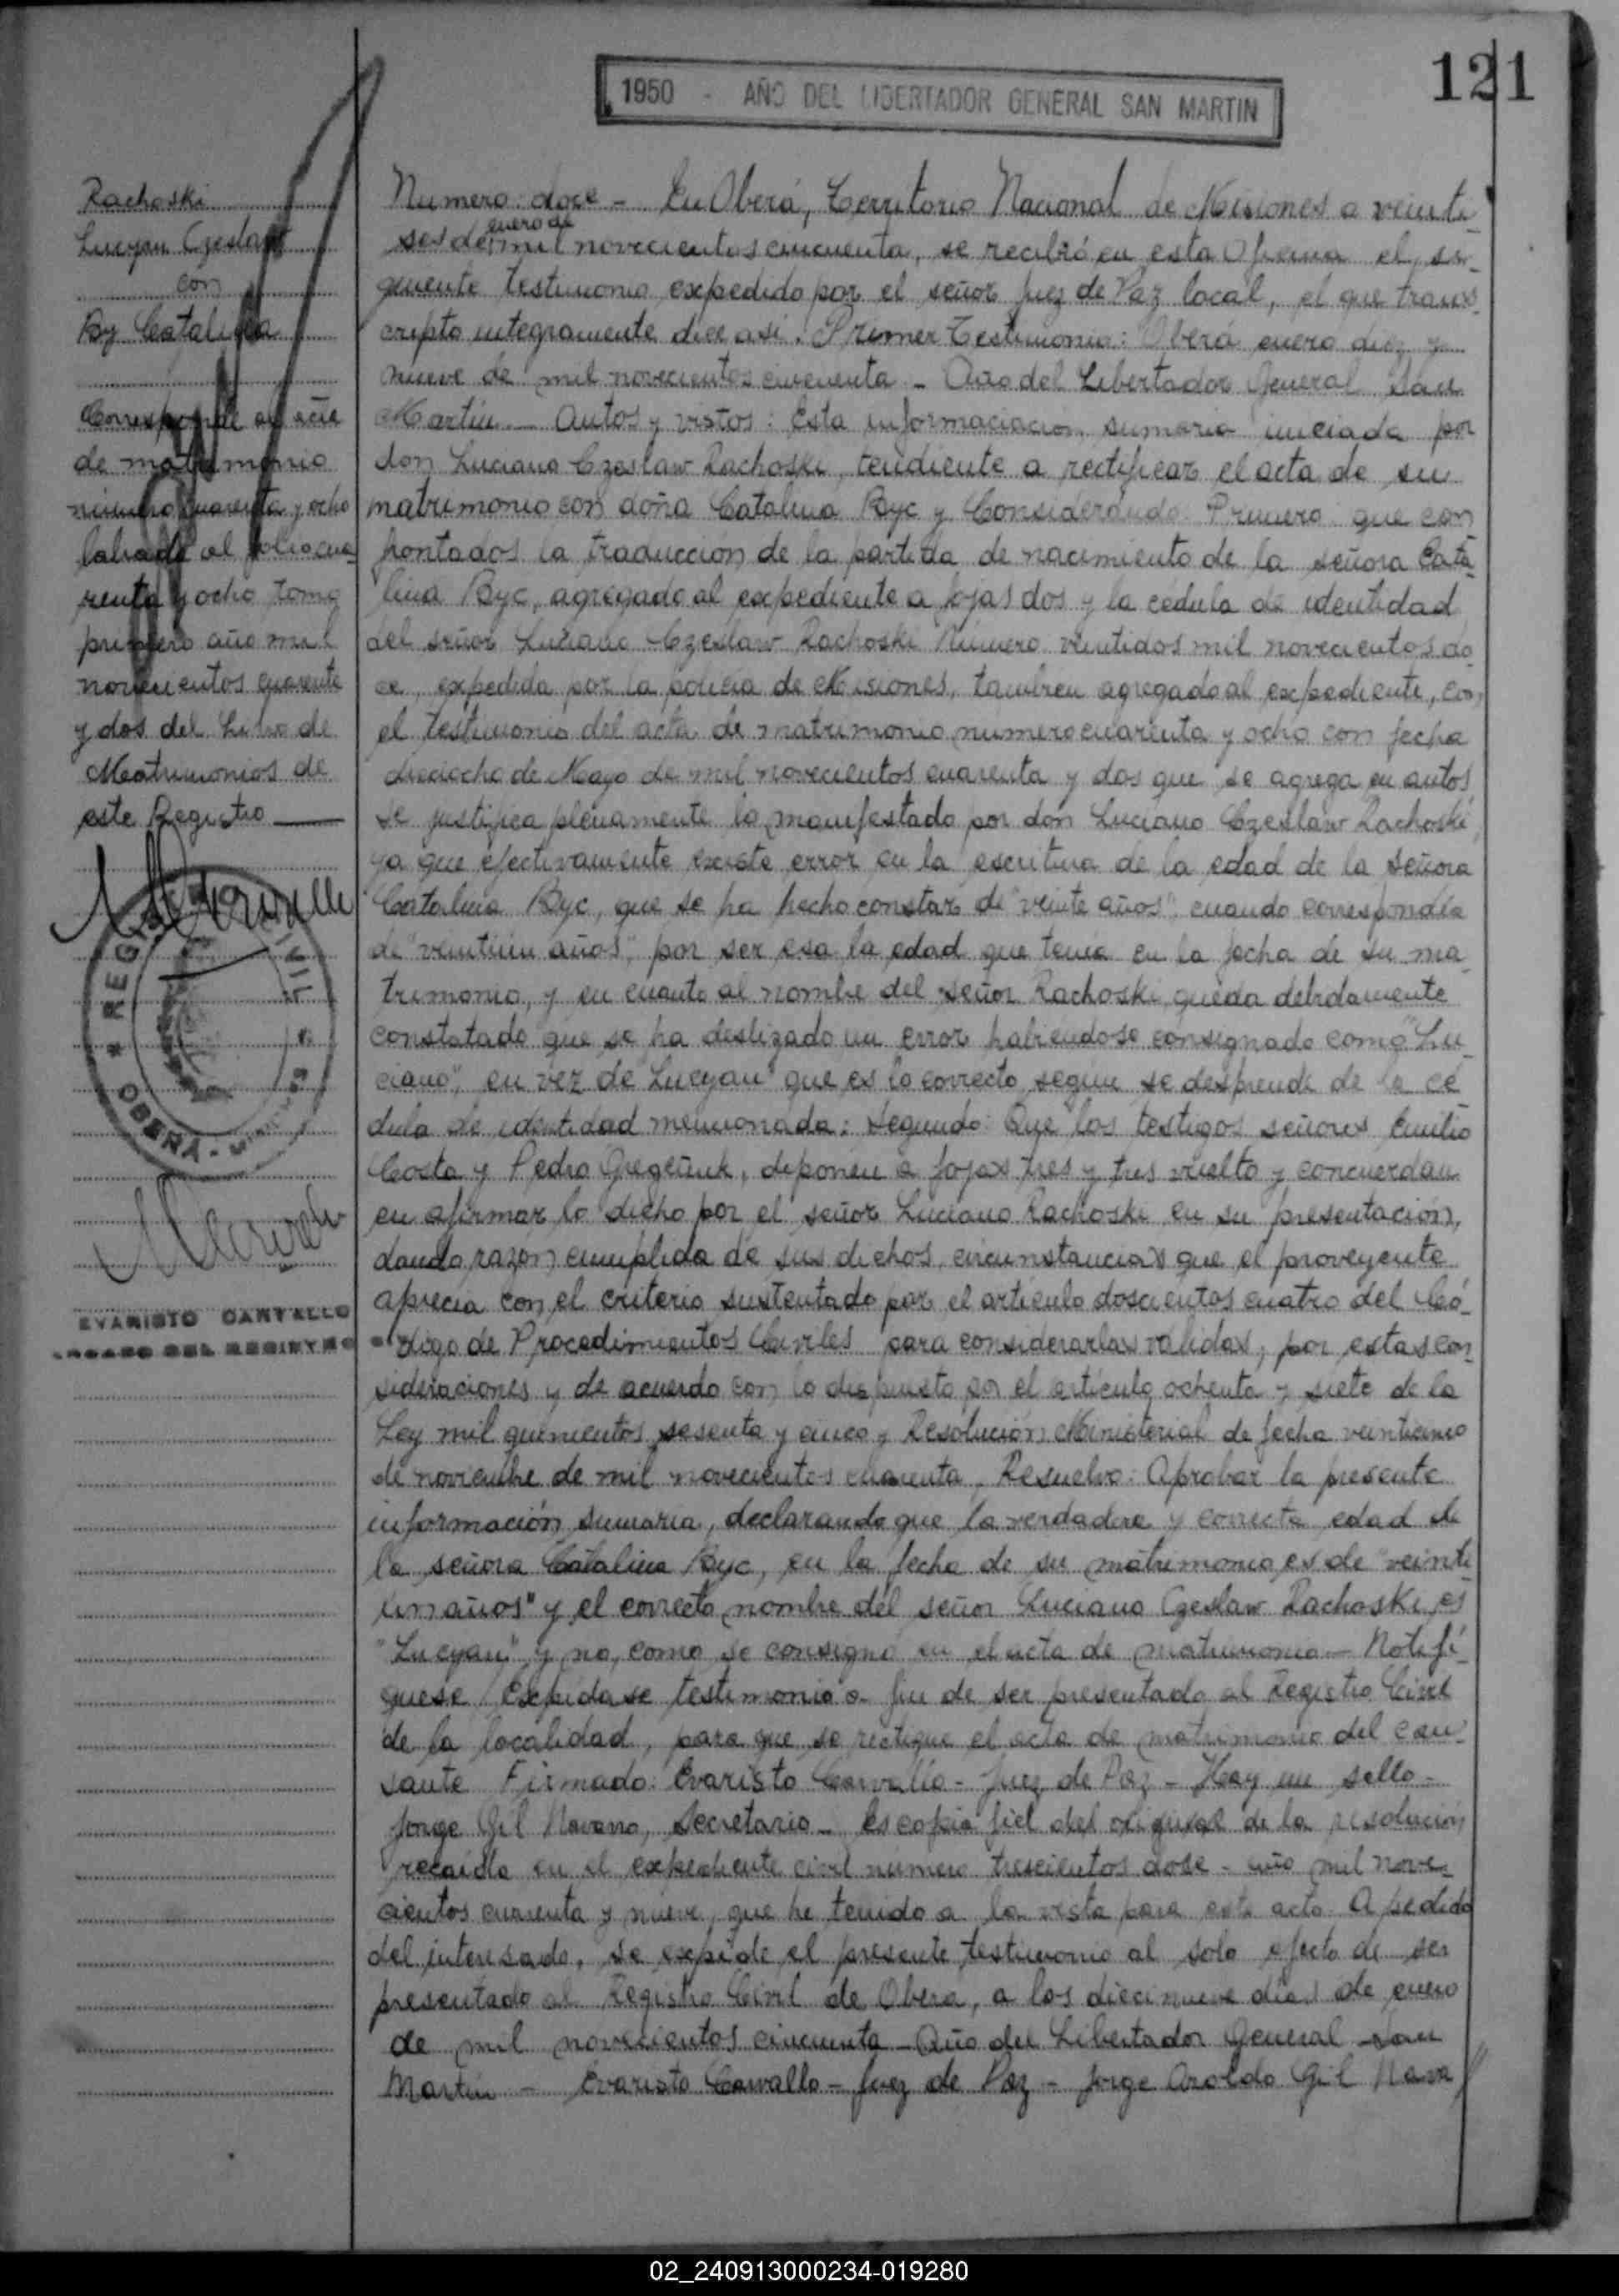 121
1950 - AÑO DEL LIBERTADOR GENERAL SAN MARTIN
Rachoski
Lucyan Czeslaw
con
By Catalina
Corresponde al acta
de matrimonio
número cuarenta y ocho
labrada al folio cua-
renta y ocho tomo
primero año mil
novecientos cuarenta
y dos del Libro de
Matrimonios de
este Registro
REGISTRO CIVIL
OBERA - MISIONES
EVARISTO CARVALLO
ENCARGADO DEL REGISTRO
Numero: doce - En Oberá, Territorio Nacional de Misiones a veinti
enero de
seis de mil novecientos cincuenta, se recibió en esta Oficina el si-
guiente testimonio expedido por el señor juez de Paz local, el que trans-
cripto integramente dice asi. Primer Testimonio: Oberá enero diez y
nueve de mil novecientos cincuenta - Año del Libertador General San
Martin - Autos y vistos: Esta informaciacion sumaria iniciada por
don Luciano Czeslaw Rachoski, tendiente a rectificar el acta de su
matrimonio con doña Catalina Byc y Considerando: Primero: que con
frontados la traducción de la partida de nacimiento de la señora Cata-
lina Byc, agregado al expediente a fojas dos y la cedula de identidad
del señor Luciano Czeslaw Rachoski Número veintidos mil novecientos do-
ce, expedida por la policia de Misiones, tambien agregado al expediente, con
el testimonio del acta de matrimonio numero cuarenta y ocho con fecha
dieciocho de Mayo de mil novecientos cuarenta y dos que se agrega en autos
se justifica plenamente lo manifestado por don Luciano Czeslaw Rachoski,
ya que efectivamente existe error en la escritura de la edad de la señora
Catalina Byc, que se ha hecho constar de "veinte años", cuando correspondía
de "veintiún años", por ser esa la edad que tenía en la fecha de su ma-
trimonio, y en cuanto al nombre del señor Rachoski, queda debidamente
constatado que se ha deslizado un error habiendose consignado como "Lu-
ciano", en vez de Lucyan" que es lo correcto, segun se desprende de la cé
dula de identidad mencionada: Segundo: Que los testigos señores Emilio
Costa y Pedro, deponen a fojas tres y tres vuelto y concuerdan
en afirmar lo dicho por el señor Luciano Rachoski en su presentación,
dando razón cumplida de sus dichos, circunstancias que el proveyente
aprecia con el criterio sustentado por el artículo doscientos cuatro del Có-
digo de Procedimientos Civiles para considerarlas validas, por estas con-
sideraciones y de acuerdo con lo dispuesto por el artículo ochenta y siete de la
Ley mil quinientos sesenta y cinco y Resolución Ministerial de fecha veinticinco
de noviembre de mil novecientos cuarenta, Resuelvo: Aprobar la presente
información sumaria, declarando que la verdadera y correcta edad de
la señora Catalina Byc, en la fecha de su matrimonio es de "veinti
un años" y el correcto nombre del señor Luciano Czeslaw Rachoski es
"Lucyan" y no, como se consignó en el acta de matrimonio - Notifí-
quese. Expidase testimonio a fin de ser presentado al Registro Civil
de la localidad, para que se rectique el acta de matrimonio del cau-
sante Firmado: Evaristo Carvallo - Juez de Paz - Hay un sello -
Jorge Gil Navarro, Secretario - Es copia fiel del original de la resolución
recaída en el expediente civil numero trescientos doce - año mil nove-
cientos cuarenta y nueve, que he tenido a la vista para este acto. A pedido
del interesado, se expide el presente testimonio al solo efecto de ser
presentado al Registro Civil de Obera, a los diecinueve dias de enero
de mil novecientos cincuenta - Año del Libertador General San
Martin - Evaristo Carvallo - Juez de Paz - Jorge Aroldo Gil Nava
02_240913000234-019280